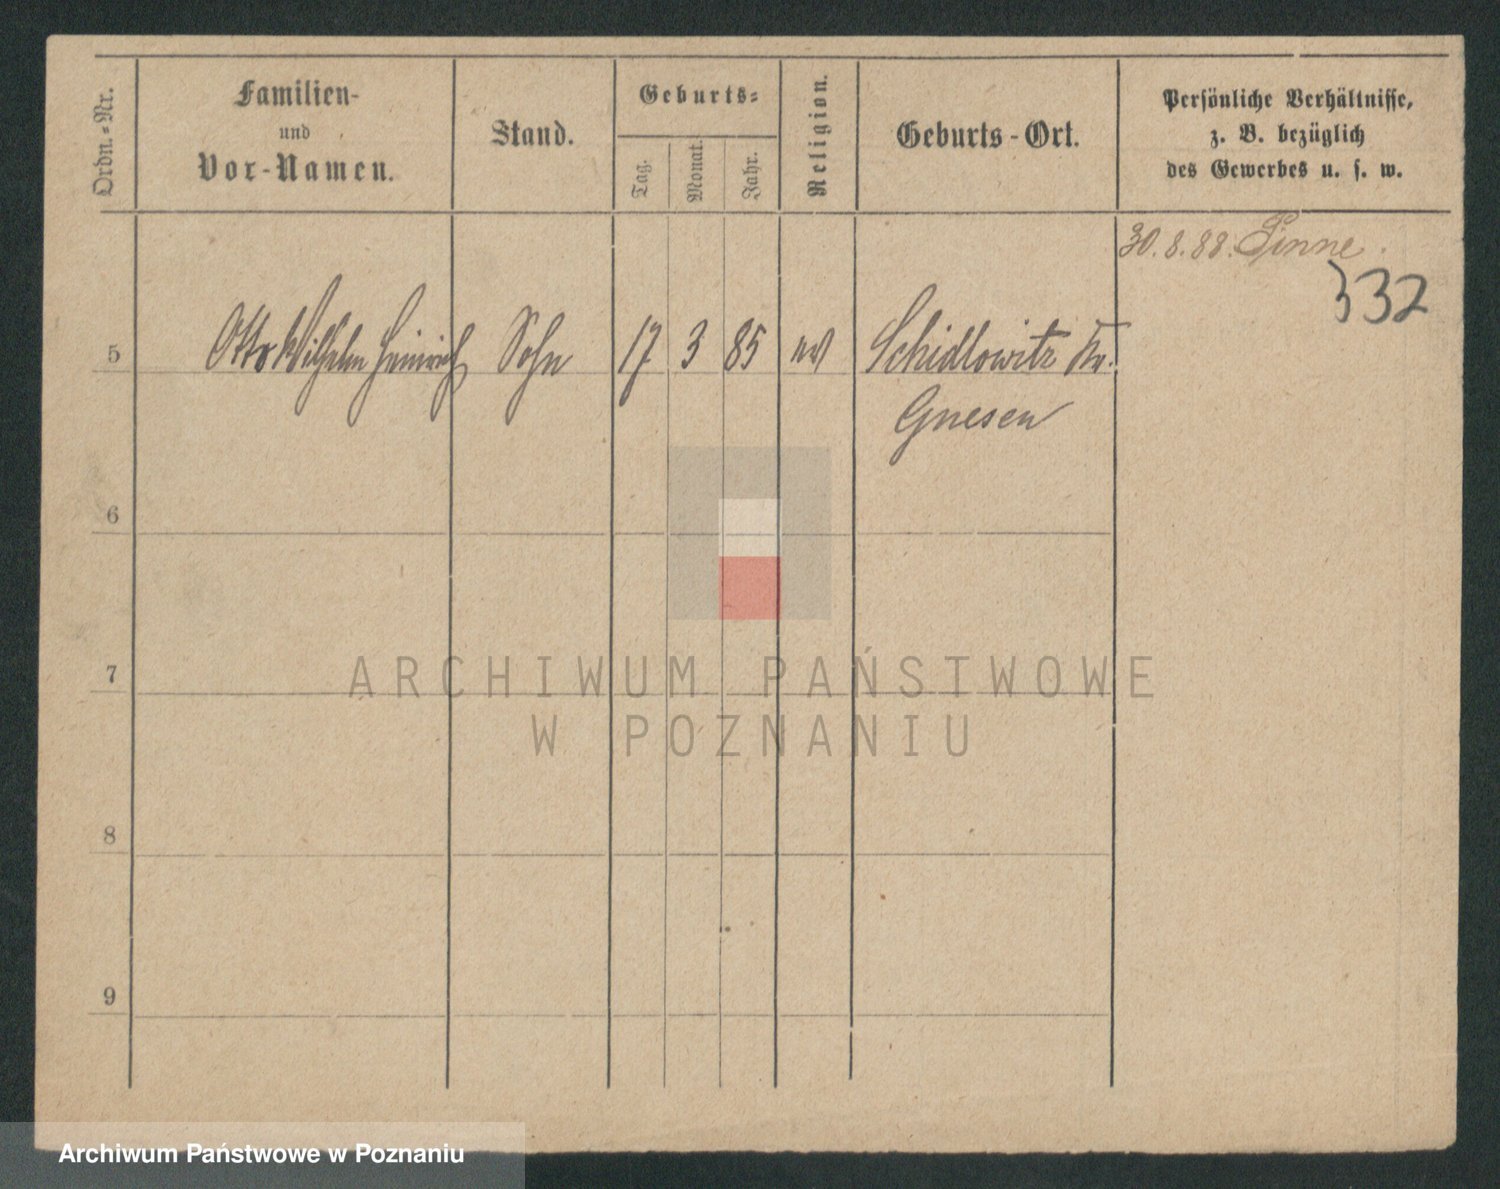 Ordn.-Nr.
Familien-
und
Vor-Namen.
Stand.
Geburts-
Tag.
Monat.
Jahr.
Religion.
Geburts-Ort.
Persönliche Verhältnisse,
z. B. bezüglich
des Gewerbes u. s. w.
30.8.88. Pinne.
332
5 Otto Wilhelm Heinrich Sohn 17 3 85 ev Schidlowitz Kr.
Gnesen
6
7
8
9
ARCHIWUM PAŃSTWOWE
W POZNANIU
Archiwum Państwowe w Poznaniu